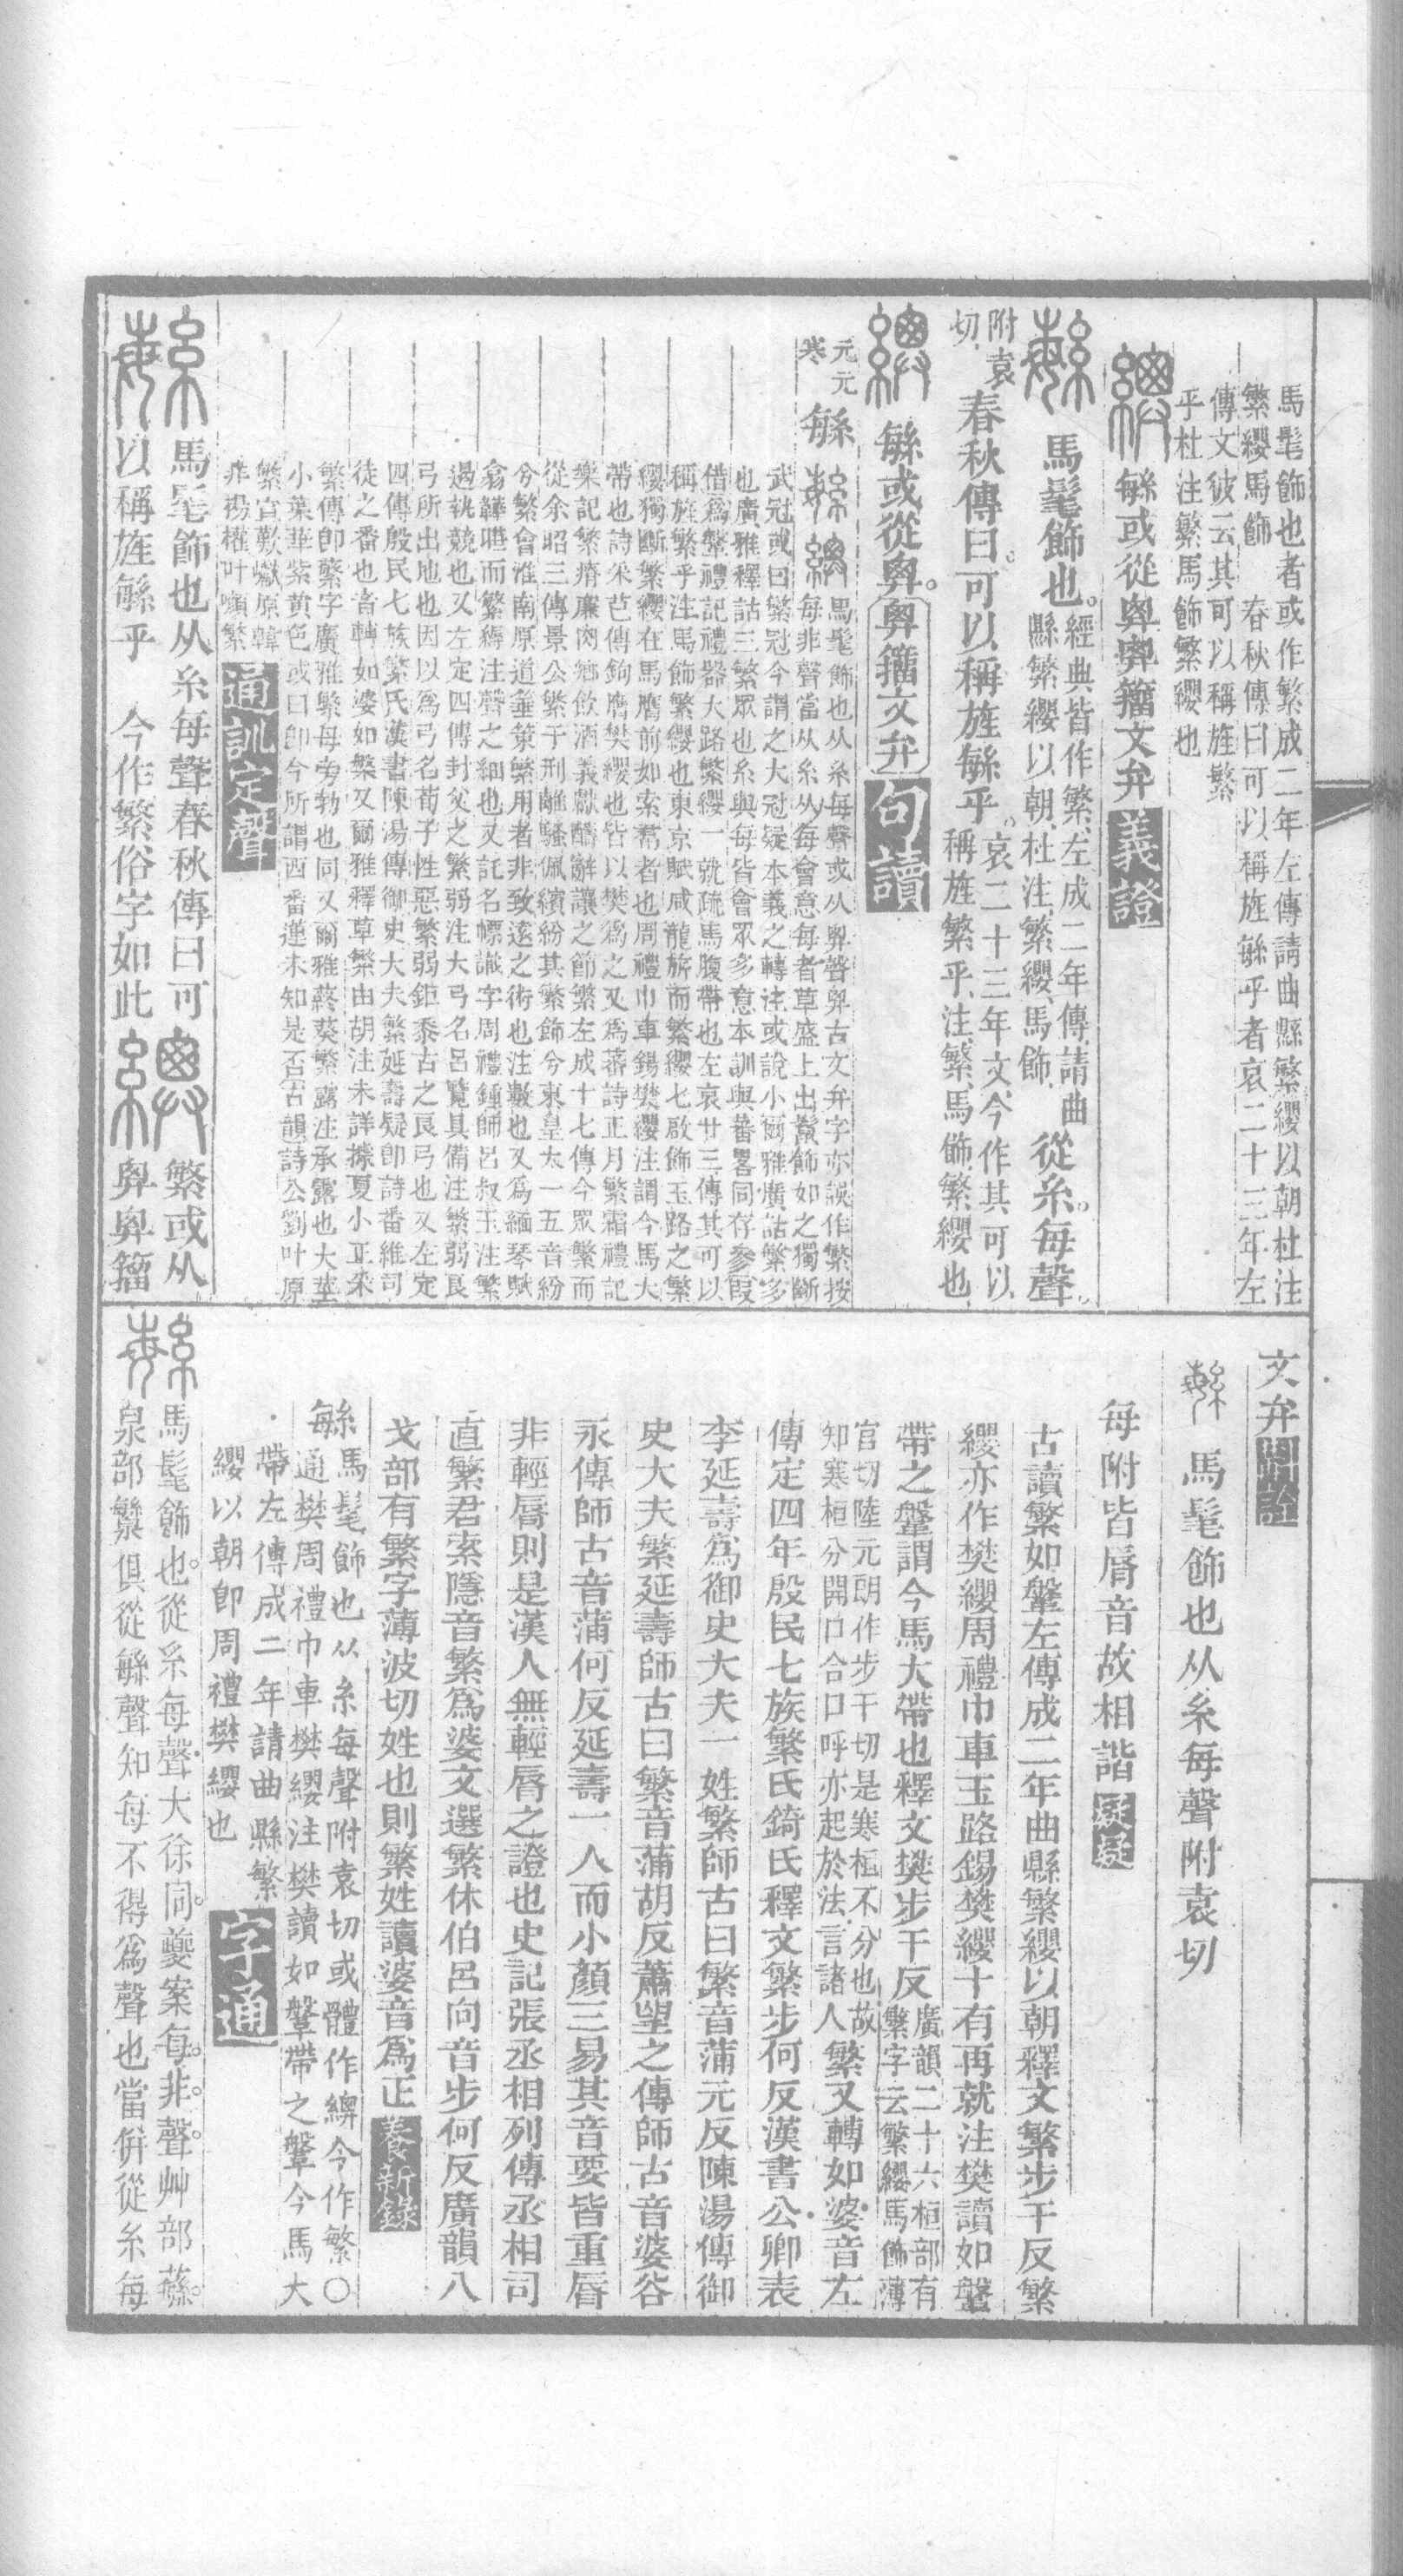 馬髦飾也者或作繁成二年左傳請曲縣繁纓以朝杜注
繁纓馬飾　春秋傳曰可以稱旌緐乎者哀二十三年左
傳文彼云其可以稱旌繁
乎杜注繁馬飾繁纓也
緐或從𢍱𢍱籒文弁義證
馬髦飾也。經典皆作繁、左成二年傳、請曲
縣繁纓以朝、杜注、繁纓、馬飾、從糸。每聲。
附袁
切、春秋傳曰。可以稱旌緐乎。哀二十三年文、今作其可以
稱旌繁乎、注、繁、馬飾、繁纓也
緐或從𢍱。𢍱籒文弁句讀
元元
寒緐馬髦飾也从糸每聲或从𢍱聲𢍱古文弁字亦誤作繁按
每非聲當从糸从每會意每者草盛上出鬣飾如之獨斷
武冠或曰繁冠今謂之大冠疑本義之轉注或說小爾雅廣詁繁多
也廣雅釋詁三繁眾也糸與每皆會眾多意本訓與蕃畧同存參叚
借爲鞶禮記禮器大路繁纓一就疏馬腹帶也左哀廿三傳其可以
稱旌繁乎注馬飾繁纓也東京賦咸龍旂而繁纓七啟飾玉路之繁
纓獨斷繁纓在馬膺前如索帬者也周禮巾車鍚樊纓注謂今馬大
帶也詩采芑傳鉤膺樊纓也皆以樊爲之又爲蕃詩正月繁霜禮記
樂記繁瘠廉肉鄉飲酒義獻酬辭讓之節繁左成十七傳今眾繁而
從余昭三傳景公繁于刑離騷佩繽紛其繁飾兮東皇太一五音紛
兮繁會淮南原道箠策繁用者非致遠之術也注數也又爲緬琴賦
而繁縟注聲之細也又託名幖識字周禮鍾師呂叔玉注繁
遏執競也又左定四傳封父之繁弱注大弓名呂覽具備注繁弱良
弓所出地也因以爲弓名荀子性惡繁弱鉅黍古之良弓也又左定
四傳殷民七族繁氏漢書陳湯傳御史大夫繁延壽疑卽詩番維司
徒之番也音轉如婆如槃又爾雅釋草蘩由胡注未詳據夏小正采
繁傳卽蘩字廣雅蘩母旁勃也同又爾雅蔠葵繁露注承露也大莖
小葉華紫黃色或曰卽今所謂西番蓮未知是否古韻詩公劉叶原
繁宣歎巘原韓
非揚榷叶囋繁通訓定聲
馬髦飾也从糸每聲春秋傳曰可
以稱旌緐乎　今作繁俗字如此繁或从
𢍱𢍱籒
文弁斠詮
馬髦飾也从糸每聲附袁切
每附皆脣音故相諧疑疑
古讀繁如鞶左傳成二年曲縣繁纓以朝釋文繁步干反繁
纓亦作樊纓周禮巾車玉路鍚樊纓十有再就注樊讀如鞶
帶之鞶謂今馬大帶也釋文樊步干反廣韻二十六桓部有
繁字云繁纓馬飾薄
官切陸元朗作步干切是寒桓不分也故
知寒桓分開口合口呼亦起於法言諸人繁又轉如婆音左
傳定四年殷民七族繁氏錡氏釋文繁步何反漢書公卿表
李延壽爲御史大夫一姓繁師古曰繁音蒲元反陳湯傳御
史大夫繁延壽師古曰繁音蒲胡反蕭望之傳師古音婆谷
永傳師古音蒲何反延壽一人而小顏三易其音要皆重脣
非輕脣則是漢人無輕脣之證也史記張丞相列傳丞相司
直繁君索隱音繁爲婆文選繁休伯呂向音步何反廣韻八
戈部有繁字薄波切姓也則繁姓讀婆音爲正養新錄
緐馬髦飾也从糸每聲附袁切或體作繉今作繁〇
通樊周禮巾車樊纓注樊讀如鞶帶之鞶今馬大
帶左傳成二年請曲縣繁
纓以朝卽周禮樊纓也字通
馬髦飾也。從糸每聲。大徐同。夔案每。非。聲。艸部蘩。
泉部瀿俱從緐聲知每不得爲聲也當倂從糸每